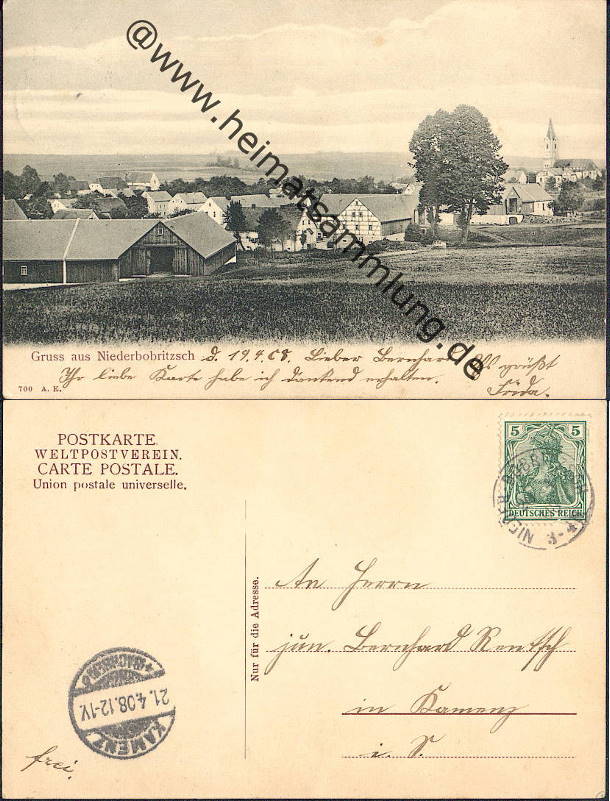 @www.heimatsammlung.de
Gruss aus Niederbobritzsch d. 19.4.08. Lieber Bernhard grüßt
Ihr liebe Karte habe ich dankend erhalten. Frida.
700 A. K.
POSTKARTE.
WELTPOSTVEREIN.
CARTE POSTALE.
Union postale universelle.
5 5
DEUTSCHES REICH
Nur für die Adresse.
An Herrn
jun. Bernhard Rentsch
in Kamenz
i. S.
21.4.08.12-1V.
KAMENZ
frei.